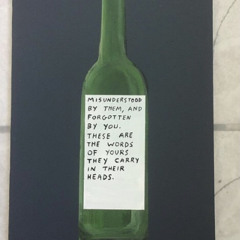 MISUNDERSTOOD
BY THEM, AND
FORGOTTEN
BY YOU.
THESE ARE
THE WORDS
OF YOURS
THEY CARRY
IN THEIR
HEADS.